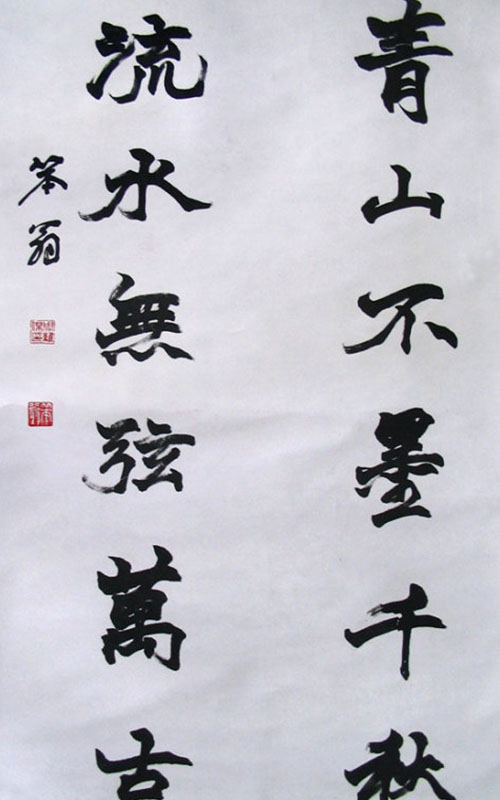 青山不墨千秋
流水無弦萬古
笨翁